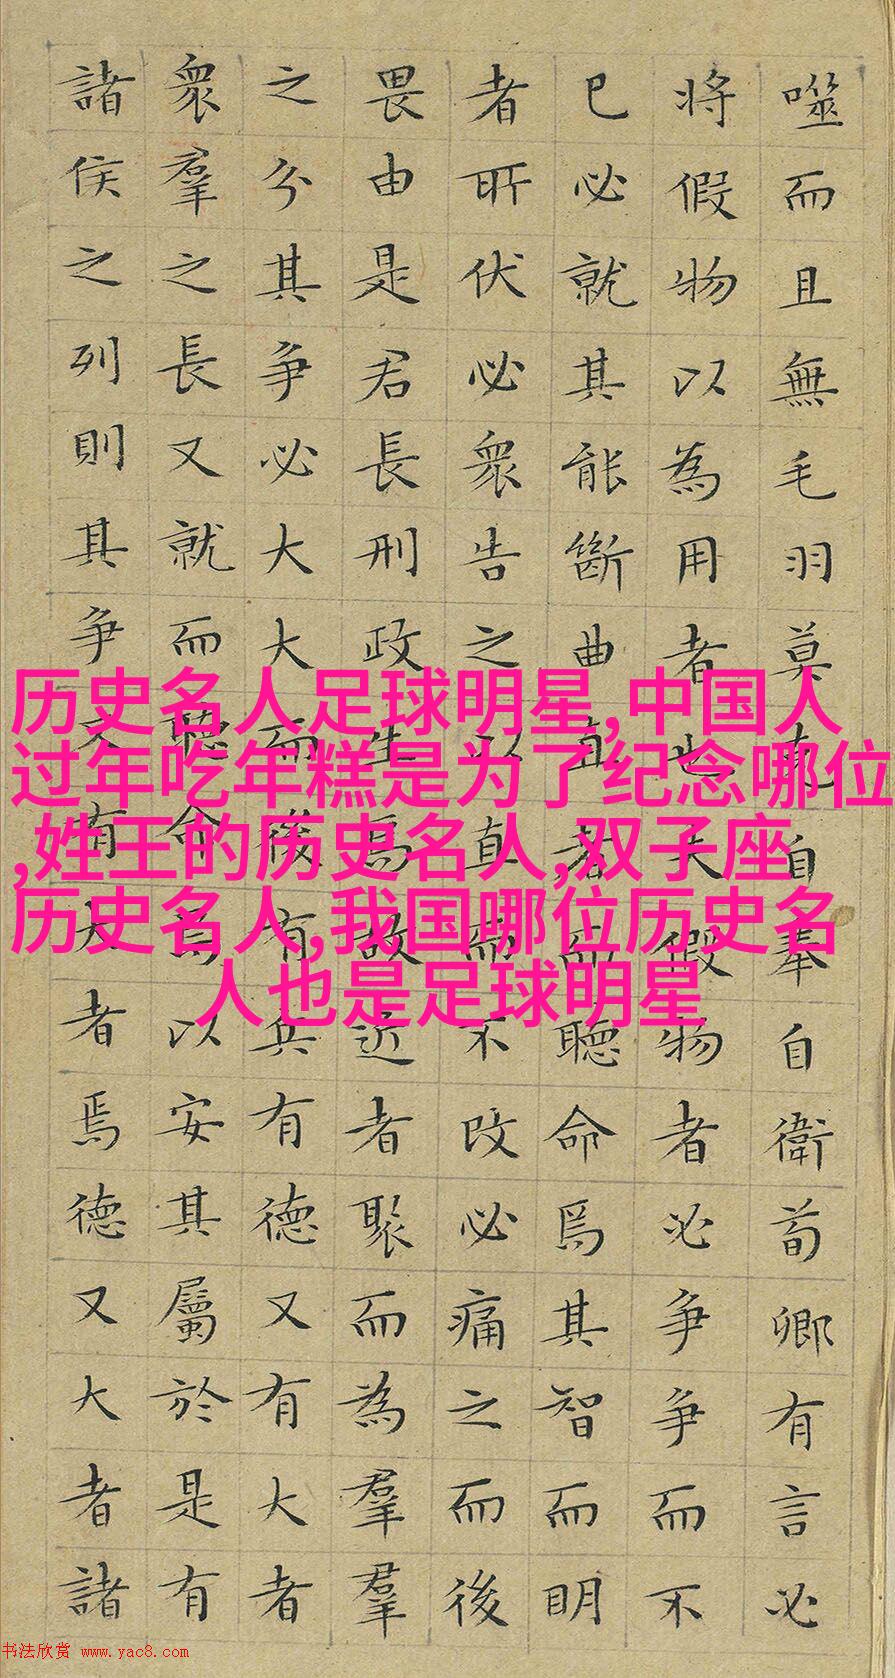 噬而且無毛羽莫克自奉自衛荀卿有言必
将假物以為用者也夫假物者必争争而不
已必就其能斷曲直者而聽命焉其智而明
者所伏必衆告之以直而不改必痛之而後
畏由是君長刑政生焉故近者聚而為羣羣
之分其争必大大而後有兵有德又有大者
衆羣之長又就而聽命焉以安其屬於是有
諸侯之列則其争又有大者焉德又大者諸
历史名人足球明星,中国人
过年吃年糕是为了纪念哪位
,姓王的历史名人,双子座
历史名人,我国哪位历史名
人也是足球明星
书法欣赏 www.yac8.com